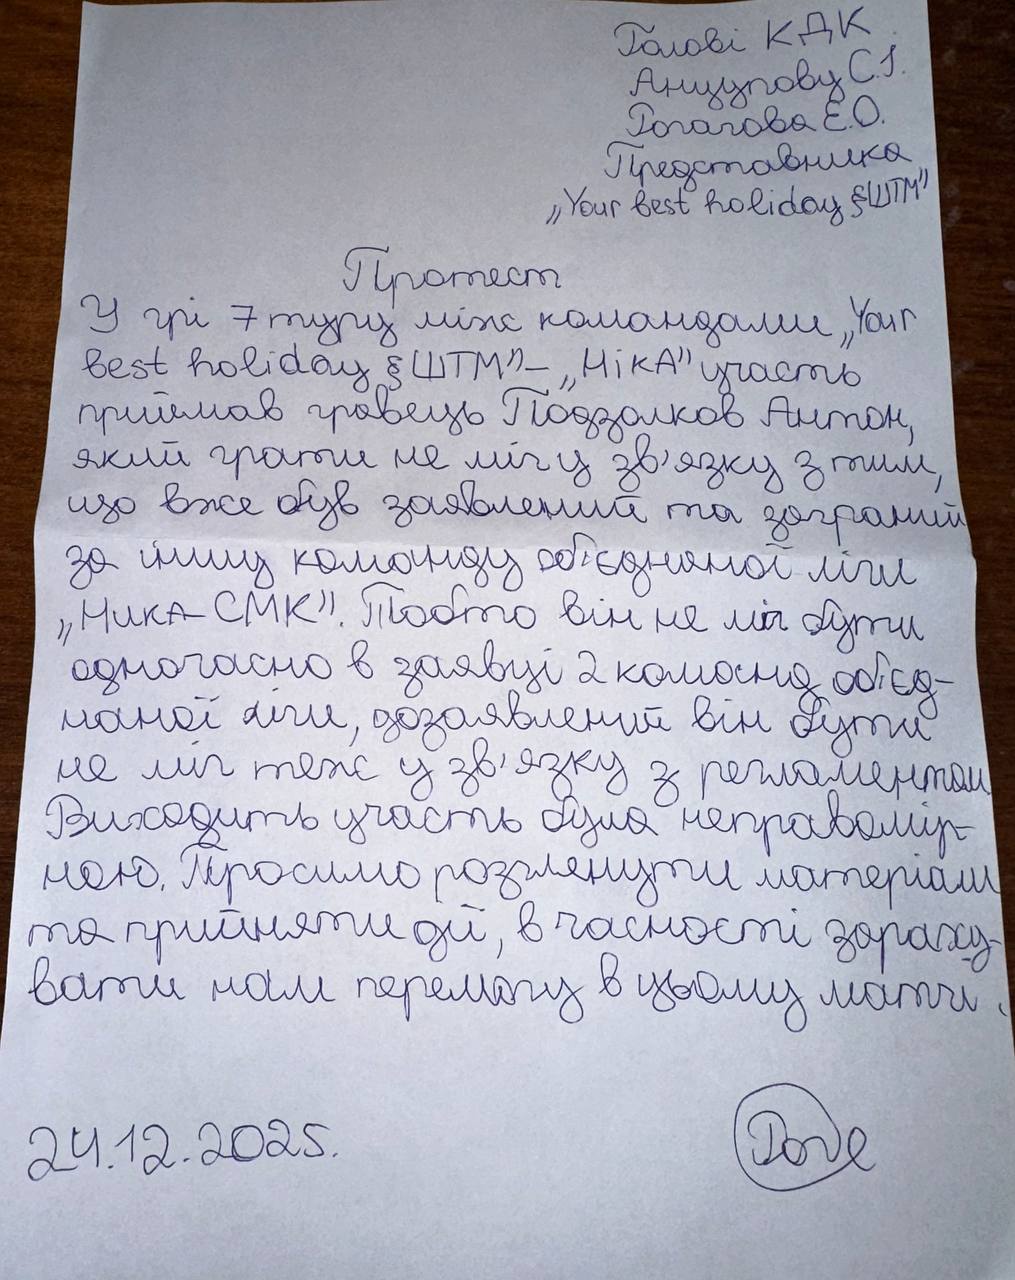 Голові КДК
Анцупову С.І.
Рогачова Є.О.
Представника
„Your best holiday §ШТМ”
Протест
У грі 7 туру між командами „Your
best holiday §ШТМ” – „НікА” участь
приймав гравець Подзолков Антон,
який грати не міг у зв'язку з тим,
що вже був заявлений та заграний
за іншу команду об'єднаної ліги
„Ника-СМК”. Тобто він не міг бути
одночасно в заявці 2 команд об'єд-
наної ліги, дозаявлений він бути
не міг теж у зв'язку з регламентом
Виходить участь була неправомір-
ною. Просимо розглянути матеріали
та прийняти дії, в часності зараху-
вати нам перемогу в цьому матчі.
24.12.2025.